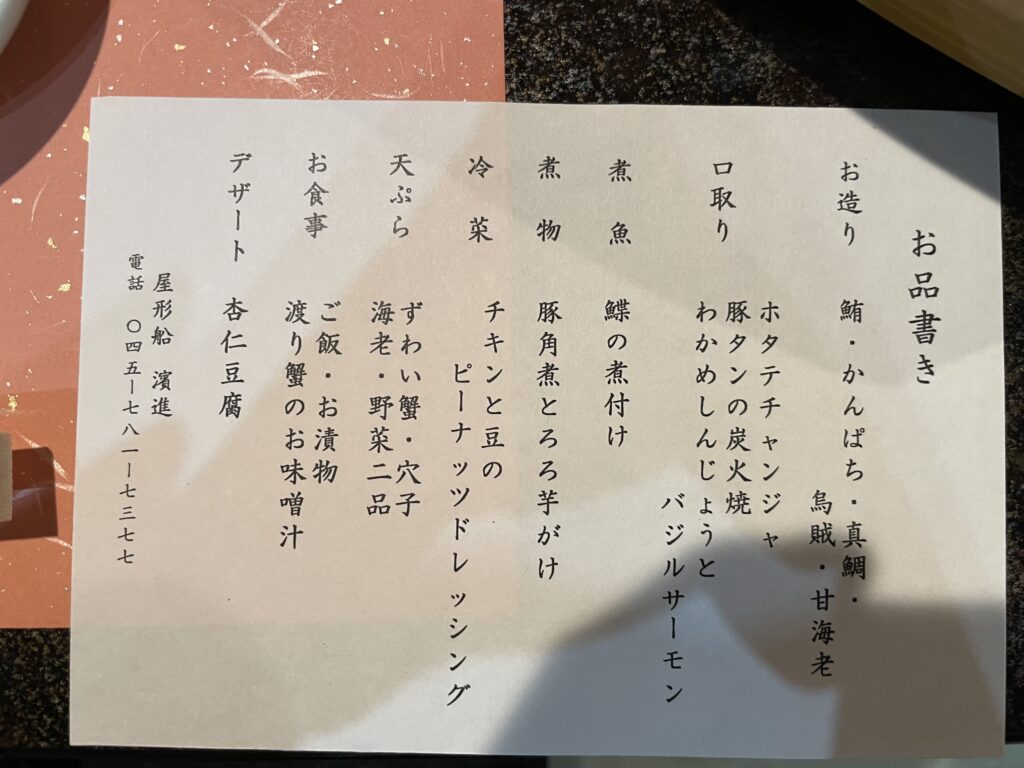 お品書き
お造り　鮪・かんぱち・真鯛・
烏賊・甘海老
口取り　ホタテチャンジャ
豚タンの炭火焼
わかめしんじょうと
バジルサーモン
煮魚　鰈の煮付け
煮物　豚角煮とろろ芋がけ
冷菜　チキンと豆の
ピーナッツドレッシング
天ぷら　ずわい蟹・穴子
海老・野菜二品
お食事　ご飯・お漬物
渡り蟹のお味噌汁
デザート　杏仁豆腐
屋形船　濱進
電話　〇四五ー七八一ー七三七七